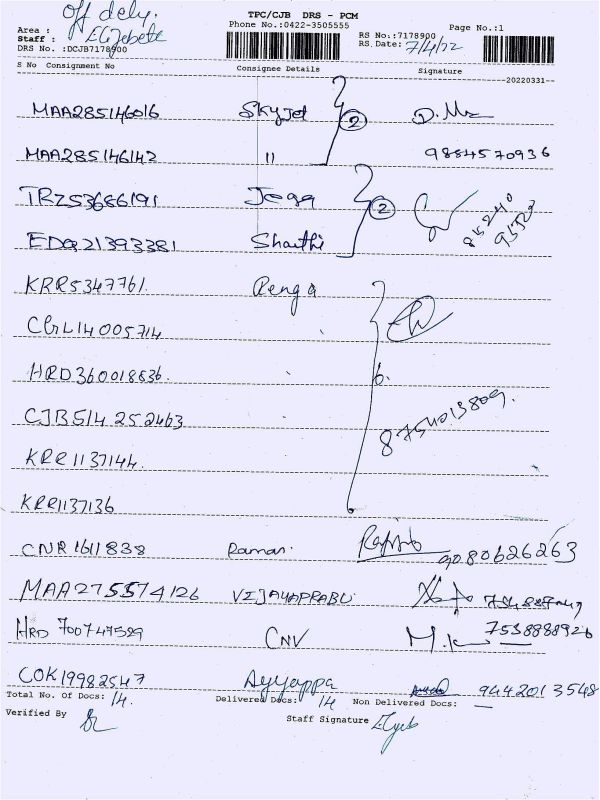 off dely.
TPC/CJB DRS - PCM
Phone No.:0422-3505555
Page No.:1
Area :
Staff : Elizebeth
RS No.:7178900
RS.Date: 7/4/22
DRS No. :DCJB7178900
S No Consignment No Consignee Details Signature
20220331
MAA285146016 Skyjet 2
MAA285146142 11 9884570936
TRZ53686191 Jega 2
EDQ21393381 Shanthi
KRR5347761. Renga
CGL14005714
HRD360018636. 6.
CJB514252463 8754013809.
KRR1137144.
KRR1137136
CNR1611838 Raman. 9080626263
MAA275574126 VIJAYAPRABU
HRD 700747589 CNV M.k 7538888926
COK19982547 Ayyappa 9442013548
Total No. of Docs: 14. Delivered Docs: 14 Non Delivered Docs: —
Verified By Staff Signature